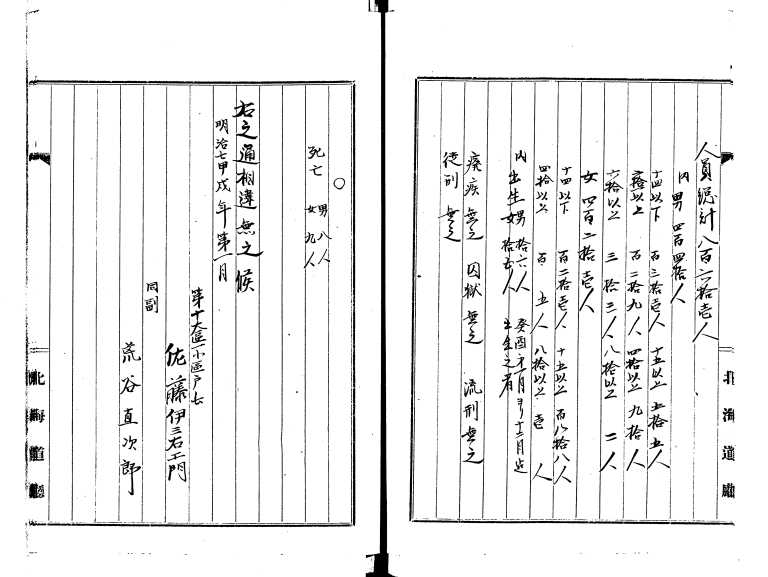 人員總計八百六拾壱人
内 男 四百四拾人
十四以下 百三拾壱人 十五以上 五拾五人
以上 百二拾九人 四拾以上 九拾人
六拾以上 三拾三人 八拾以上 二人
女 四百二拾壱人
十四以下 百二拾壱人 十五以上 百八拾八人
四拾以上 百五人 八拾以上 壱人
内 出生 男 拾六人
女 拾五人
癸酉 月ヨリ十二月迄
出生之者
廃疾無之 囚獄無之 流刑無之
徒刑無之
北海道廳
○
死亡 男 八人
女 九人
右之通相違無之候
明治七甲戌年第一月
第十大區一小區戸長
佐藤伊三右エ門
同副
荒谷直次郎
北海道廳